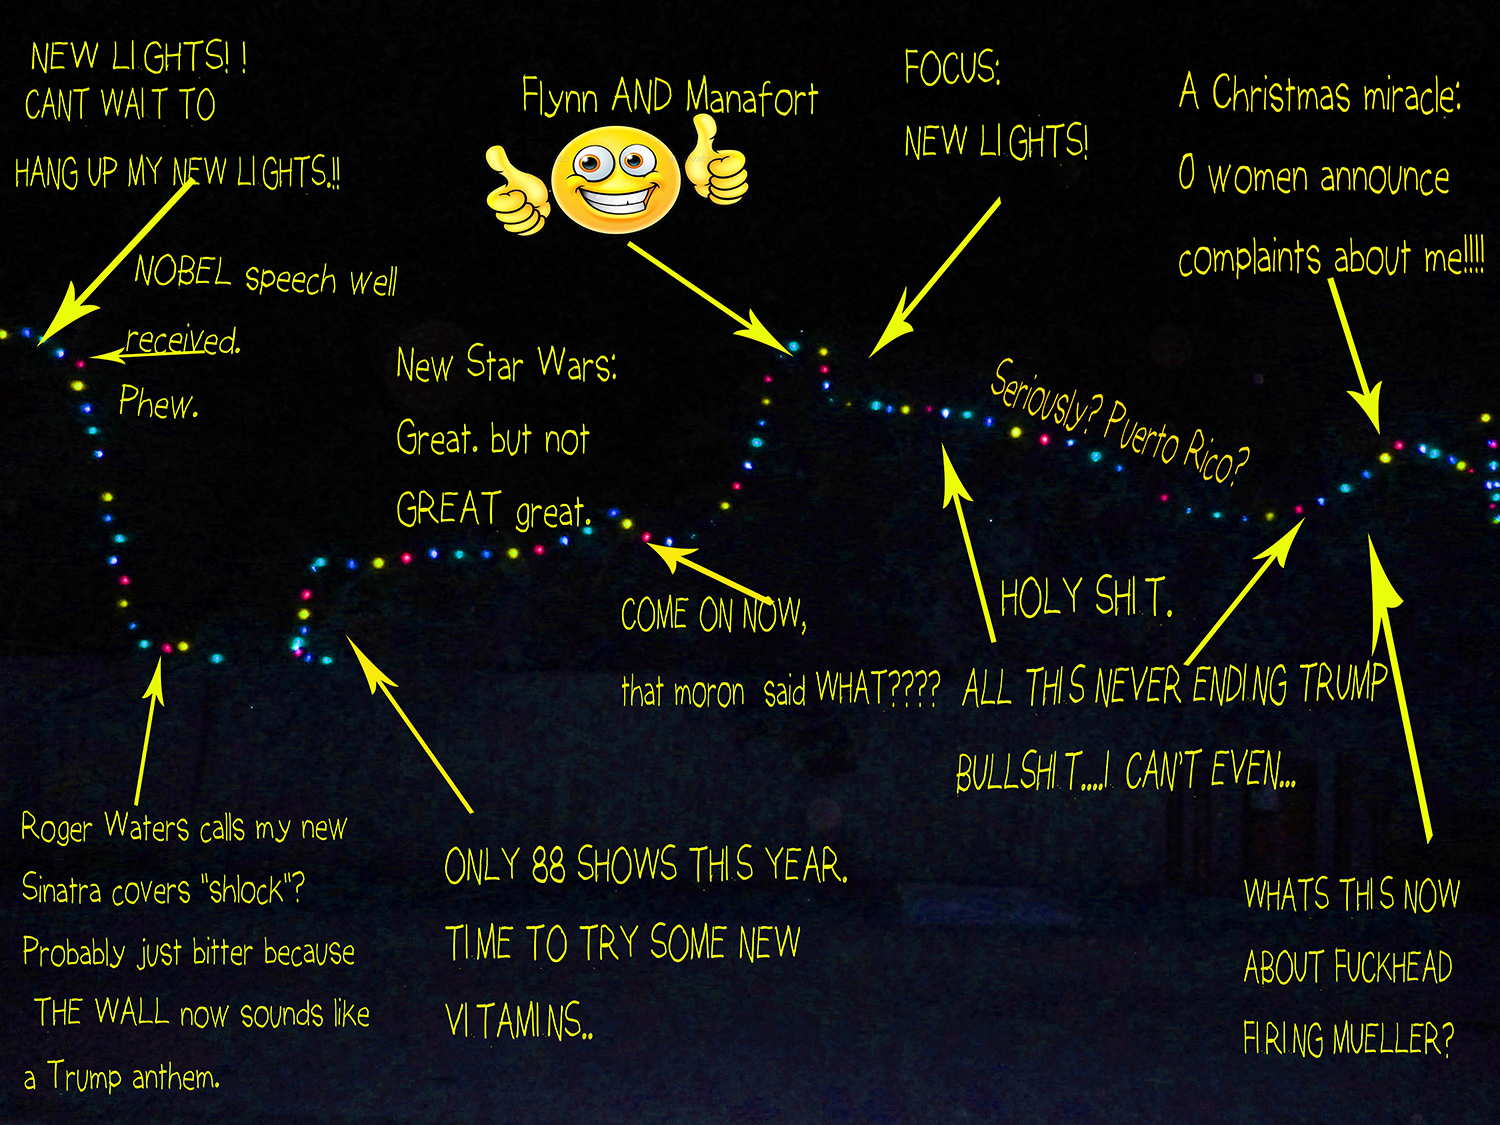 NEW LIGHTS! !
CANT WAIT TO
HANG UP MY NEW LIGHTS.!!
NOBEL speech well
received.
Phew.
Flynn AND Manafort
FOCUS:
NEW LIGHTS!
A Christmas miracle:
0 women announce
complaints about me!!!!
New Star Wars:
Great. but not
GREAT great.
Seriously? Puerto Rico?
COME ON NOW,
that moron said WHAT????
HOLY SHIT.
ALL THIS NEVER ENDING TRUMP
BULLSHIT....I CAN'T EVEN...
Roger Waters calls my new
Sinatra covers "shlock"?
Probably just bitter because
THE WALL now sounds like
a Trump anthem.
ONLY 88 SHOWS THIS YEAR.
TIME TO TRY SOME NEW
VITAMINS..
WHATS THIS NOW
ABOUT FUCKHEAD
FIRING MUELLER?